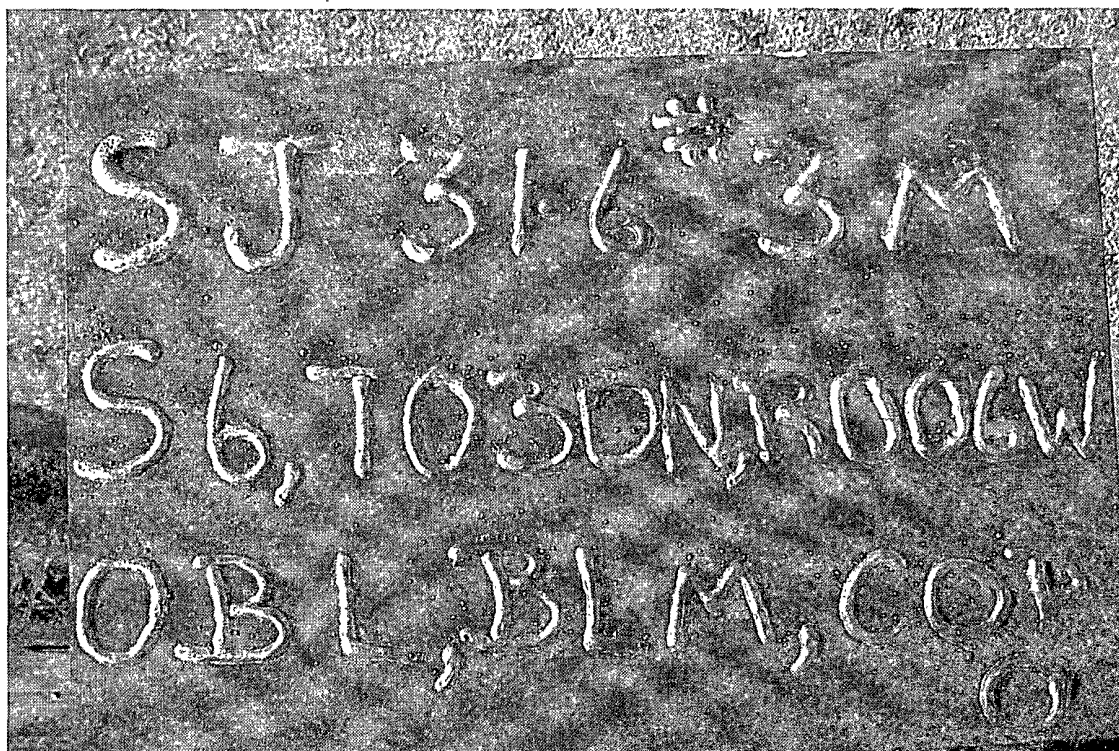 SJ 31-6 # 3M
S6, T030N, R006W
OBL, BLM, COP
O